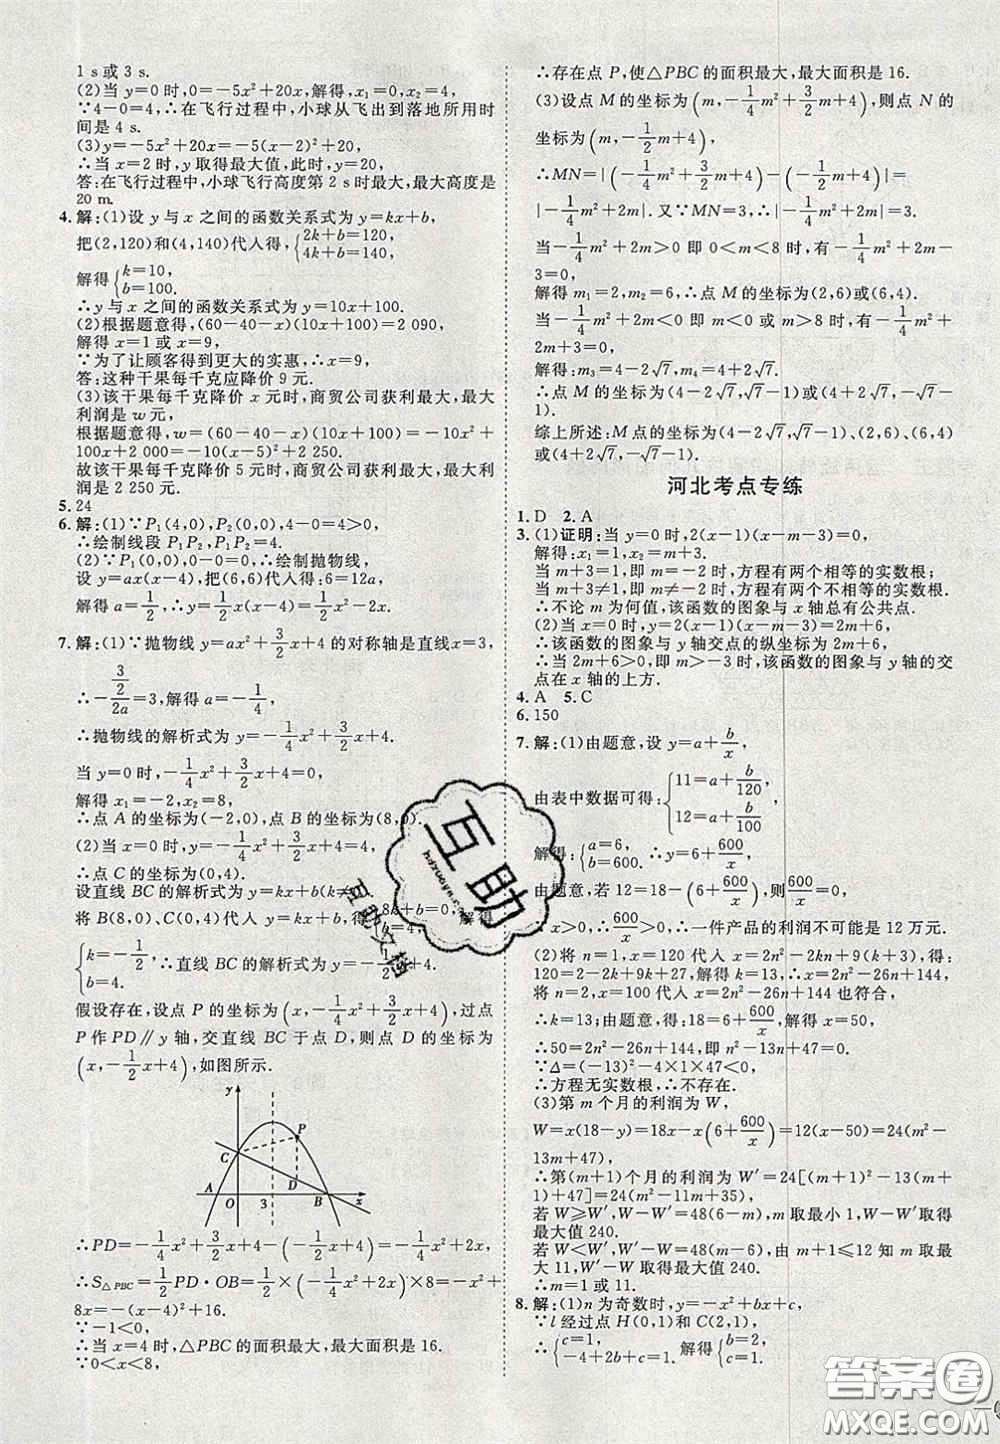 1 s或 3 s.
(2)当 y=0 时,0=-5x²+20x,解得,x₁=0,x₂=4,
∵4-0=4,∴在飞行过程中,小球从飞出到落地所用时
间是 4 s.
(3)y=-5x²+20x=-5(x-2)²+20,
∴当 x=2 时,y 取得最大值,此时,y=20,
答:在飞行过程中,小球飞行高度第 2 s时最大,最大高度是
20 m.
4. 解:(1)设 y 与 x 之间的函数关系式为 y=kx+b,
把(2,120)和(4,140)代人得,{2k+b=120, 4k+b=140,
解得{k=10, b=100.
∴y 与 x 之间的函数关系式为 y=10x+100.
(2)根据题意得,(60-40-x)(10x+100)=2 090,
解得 x=1 或 x=9,
∵为了让顾客得到更大的实惠,∴x=9,
答:这种干果每千克应降价 9 元.
(3)该干果每千克降价 x 元时,商贸公司获利最大,最大
利润是 w 元,
根据题意得,w=(60-40-x)(10x+100)=-10x²+
100x+2 000=-10(x-5)²+2 250,
故该干果每千克降价 5 元时,商贸公司获利最大,最大利
润是 2 250 元.
5. 24
6. 解:(1)∵P₁(4,0),P₂(0,0),4-0=4>0,
∴绘制线段 P₁P₂,P₁P₂=4.
(2)∵P₁(0,0),P₂(4,0),0-4<0,∴绘制抛物线,
设 y=ax(x-4),把(6,6)代入得:6=12a,
解得 a=1/2,∴y=1/2x(x-4)=1/2x²-2x.
7. 解:(1)∵抛物线 y=ax²+3/2x+4 的对称轴是直线x=3,
∴-(3/2)/(2a)=3,解得 a=-1/4,
∴抛物线的解析式为 y=-1/4x²+3/2x+4.
当 y=0 时,-1/4x²+3/2x+4=0,
解得 x₁=-2,x₂=8,
∴点 A 的坐标为(-2,0),点 B 的坐标为(8,0).
(2)当 x=0 时,y=-1/4x²+3/2x+4=4,
∴点 C 的坐标为(0,4).
设直线 BC 的解析式为 y=kx+b(k≠
将 B(8,0),C(0,4)代人 y=kx+b,得 8k+b=0, 解得
{k=-1/2, b=4. ∴直线 BC 的解析式为 y=-1/2x+4.
假设存在,设点 P 的坐标为(x,-1/4x²+3/2x+4),过点
P 作 PD∥y 轴,交直线 BC 于点 D,则点 D 的坐标为
(x,-1/2x+4),如图所示.
y
P
C
D
A O 3 B x
∴PD=-1/4x²+3/2x+4-(-1/2x+4)=-1/4x²+2x,
∴S△PBC=1/2PD·OB=1/2×(-1/4x²+2x)×8=-x²+
8x=-(x-4)²+16.
∵-1<0,
∴当 x=4 时,△PBC 的面积最大,最大面积是 16.
∵0<x<8,
∴存在点 P,使△PBC 的面积最大,最大面积是 16.
(3)设点 M 的坐标为(m,-1/4m²+3/2m+4),则点 N 的
坐标为(m,-1/2m+4),
∴MN=|(-1/4m²+3/2m+4)-(-1/2m+4)|=
|-1/4m²+2m|.又∵MN=3,∴|-1/4m²+2m|=3.
当-1/4m²+2m>0,即 0<m<8 时,有-1/4m²+2m-
3=0,
解得 m₁=2,m₂=6,∴点 M 的坐标为(2,6)或(6,4).
当-1/4m²+2m<0,即 m<0 或 m>8 时,有-1/4m²+
2m+3=0,
解得:m₃=4-2√7,m₄=4+2√7.
∴点 M 的坐标为(4-2√7,√7-1)或(4+2√7,-√7-
1).
综上所述:M 点的坐标为(4-2√7,√7-1)、(2,6)、(6,4)
或(4+2√7,-√7-1).
河北考点专练
1. D 2. A
3. (1)证明:当 y=0 时,2(x-1)(x-m-3)=0,
解得:x₁=1,x₂=m+3.
当 m+3=1,即 m=-2 时,方程有两个相等的实数根;
当 m+3≠1,即 m≠-2 时,方程有两个不相等的实数根,
∴不论 m 为何值,该函数的图象与 x 轴总有公共点.
(2)当 x=0 时,y=2(x-1)(x-m-3)=2m+6,
∴该函数的图象与 y 轴交点的纵坐标为 2m+6,
∴当 2m+6>0,即 m>-3 时,该函数的图象与 y 轴的交
点在 x 轴的上方.
4. A 5. C
6. 150
7. 解:(1)由题意,设 y=a+b/x,
由表中数据可得:{11=a+b/120, 12=a+b/100,
解得:{a=6, b=600. ∴y=6+600/x,
由题意,若 12=18-(6+600/x),则600/x=0,
∵x>0,∴600/x>0,∴一件产品的利润不可能是 12 万元.
(2)将 n=1,x=120 代入 x=2n²-2kn+9(k+3),得:
120=2-2k+9k+27,解得 k=13,∴x=2n²-26n+144,
将 n=2,x=100 代人 x=2n²-26n+144也符合,
∴k=13;由题意,得:18=6+600/x,解得 x=50,
∴50=2n²-26n+144,即 n²-13n+47=0,
∵Δ=(-13)²-4×1×47<0,
∴方程无实数根,∴不存在.
(3)第 m 个月的利润为 W,
W=x(18-y)=18x-x(6+600/x)=12(x-50)=24(m²-
13m+47),
∴第(m+1)个月的利润为 W′=24[(m+1)²-13(m+
1)+47]=24(m²-11m+35),
若 W≥W′,W-W′=48(6-m),m 取最小 1,W-W′取得
最大值 240.
若 W<W′,W′-W=48(m-6),由 m+1≤12 知 m 取最
大 11,W′-W 取得最大值 240.
∴m=1 或 11.
8. 解:(1)n 为奇数时,y=-x²+bx+c,
∵l 经过点 H(0,1)和 C(2,1),
∴{c=1, -4+2b+c=1, 解得{b=2, c=1.
互助
hdzuoye.com
互助文档
答案圈
MXQE.COM